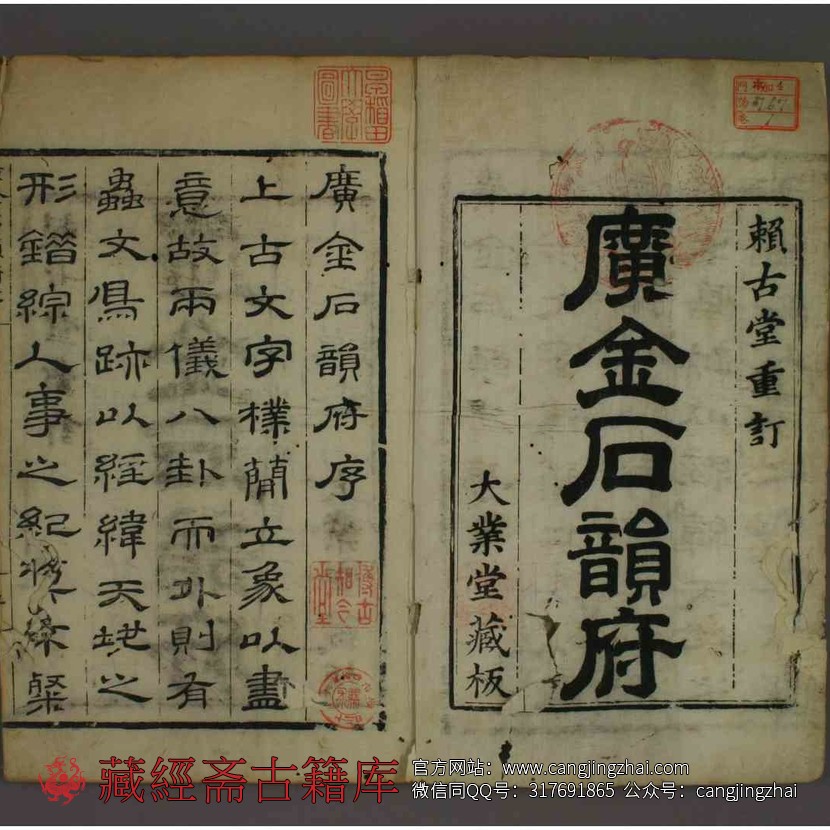 賴古堂重訂
廣金石韻府
大業堂藏板
早稻田大學圖書
廣金石韻府序
上古文字樸簡立象以盡
意故兩儀八卦而外則有
蟲文鳥跡以經緯天地之
形錯綜人事之紀粲
藏經斋古籍库
官方网站：www.cangjingzhai.com
微信同QQ号：317691865 公众号：cangjingzhai